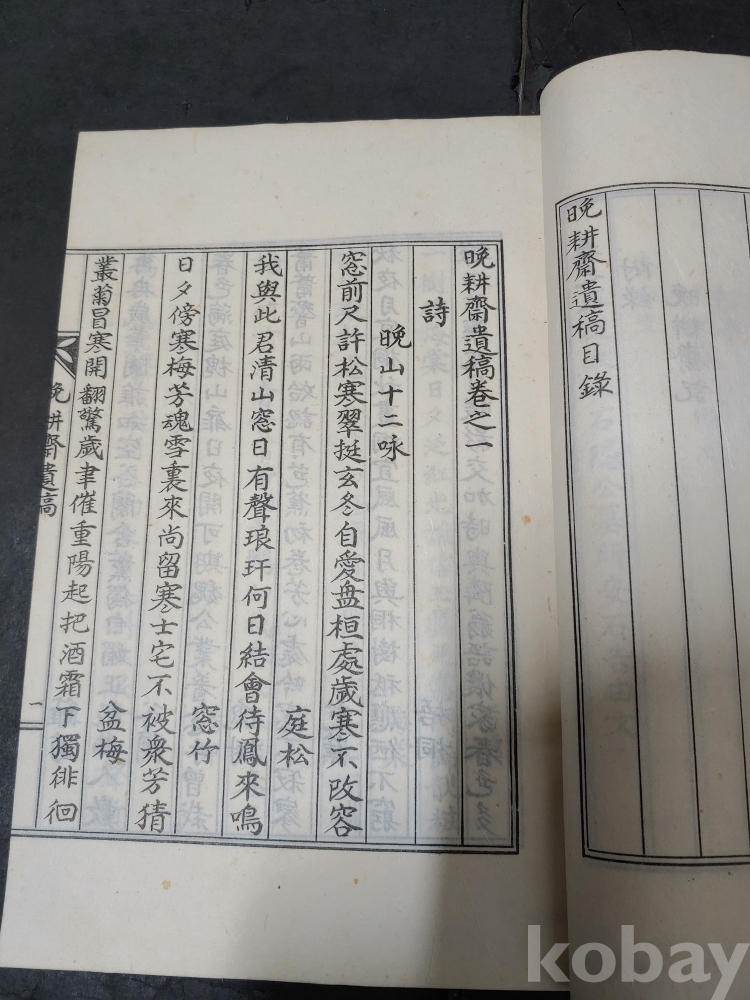 晩耕齋遺稿目錄
晩耕齋遺稿卷之一
詩
晩山十二咏
窓前尺許松寒翠挺玄冬自愛盘桓處歲寒不改容
庭松
我與此君清山窓日有聲琅玕何日結會待鳳來鳴
窓竹
日夕傍寒梅芳魂雪裏來尚留寒士宅不被衆芳猜
盆梅
叢菊冒寒開翻驚歲聿催重陽起把酒霜下獨徘徊
晩耕齋遺稿
一
kobay